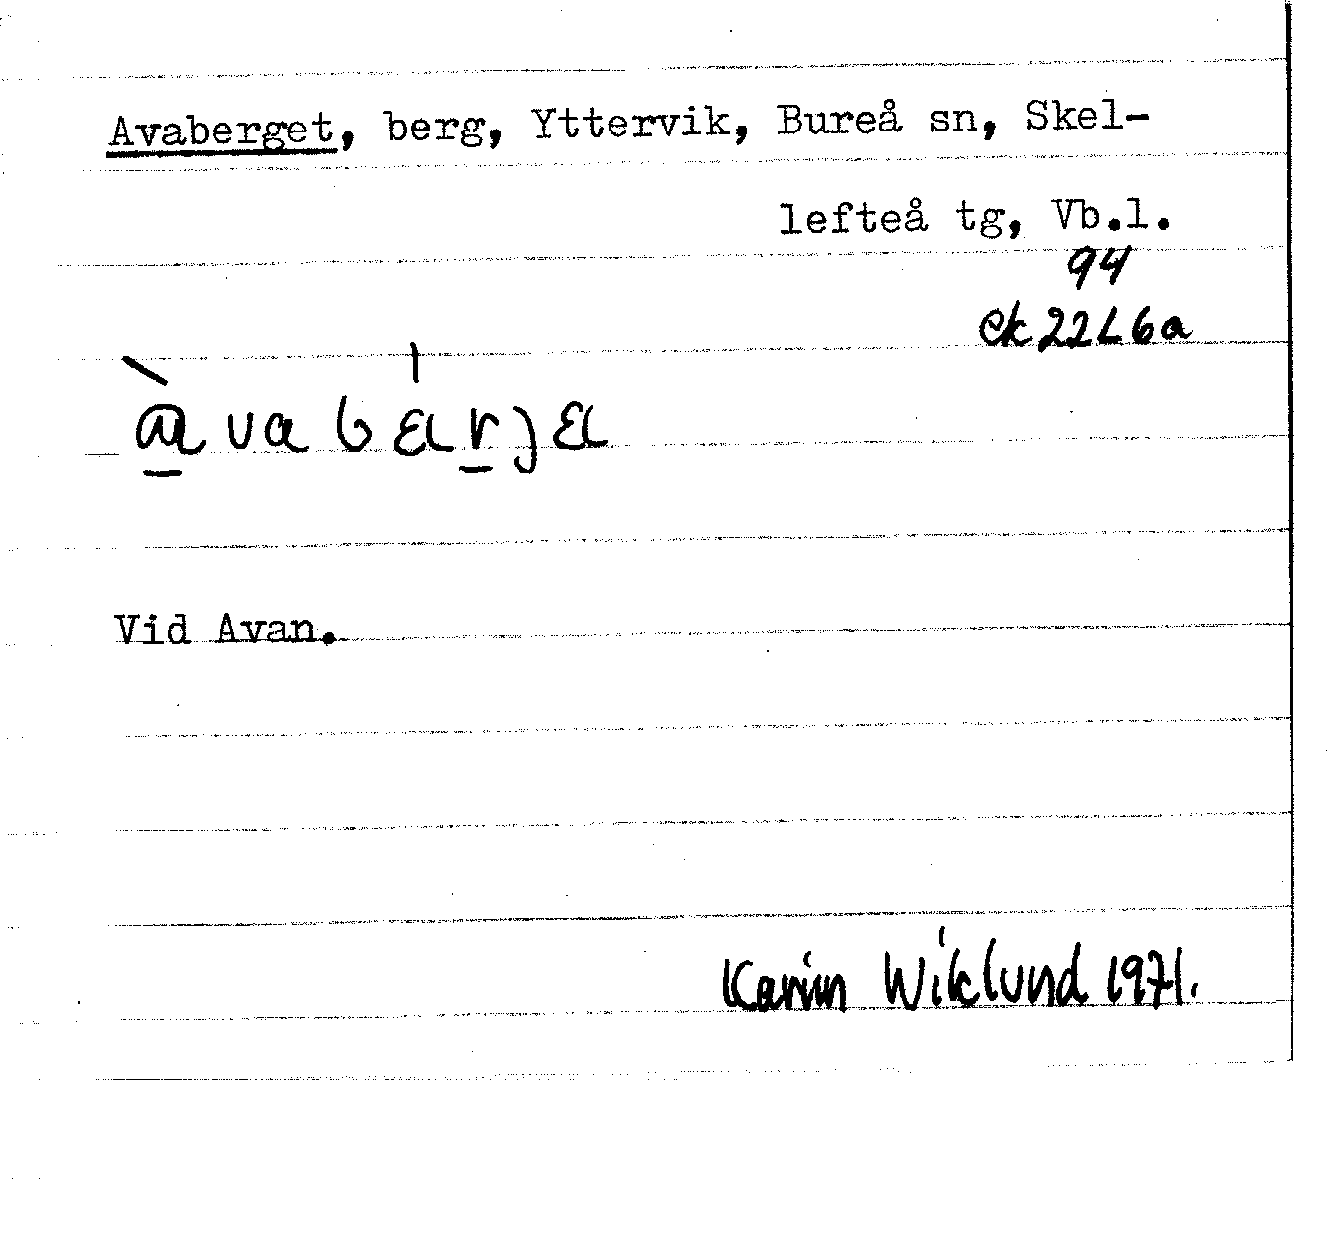 Avaberget, berg, Yttervik, Bureå sn, Skel-
lefteå tg, Vb.l.
94
ek 22L6a
Vid Avan.
Karin Wiklund 1971.